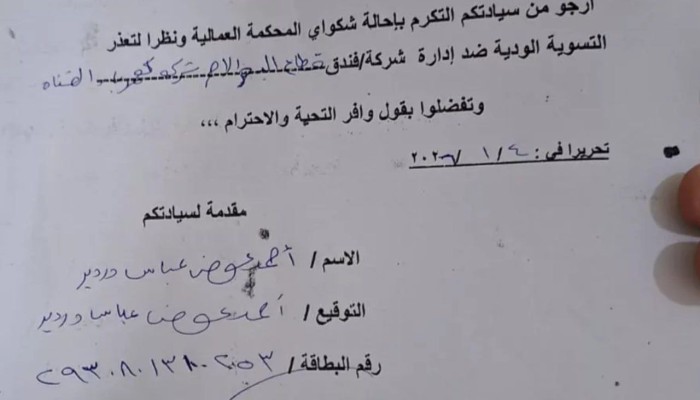 ارجو من سيادتكم التكرم بإحالة شكواي المحكمة العمالية ونظرا لتعذر
التسوية الودية ضد إدارة شركة/فندق قطاع البحر الاحمر شركة كهرباء القناه
وتفضلوا بقول وافر التحية والاحترام ،،،
تحريرا في : ٤ / ١ / ٢٠٢٦
مقدمة لسيادتكم
الاسم / أحمد عوض عباس دردير
التوقيع / أحمد عوض عباس دردير
رقم البطاقة / ٢٩٣٠٨٠١٣٨٠٢٥٣